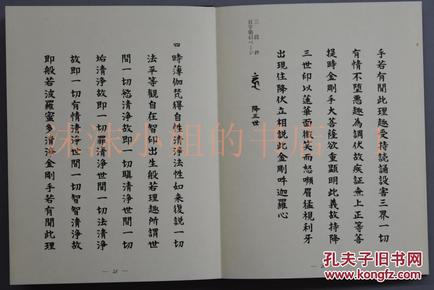 手若有聞此理趣受持讀誦設害三界一切
有情不墮惡趣為調伏故疾証無上正等菩
提時金剛手大菩薩欲重顯明此義故持降
三世印以蓮華面微笑而怒顰眉猛視利牙
出現住降伏立相說此金剛吽迦羅心
降三世
三段鈔
四時薄伽梵得自性清淨法性如來復說一切
法平等觀自在智印出生般若理趣所謂世
間一切慾清淨故即一切瞋清淨世間一切
垢清淨故即一切罪清淨世間一切法清淨
故即一切有情清淨世間一切智智清淨故
即般若波羅蜜多清淨金剛手若有聞此理
孔夫子旧书网